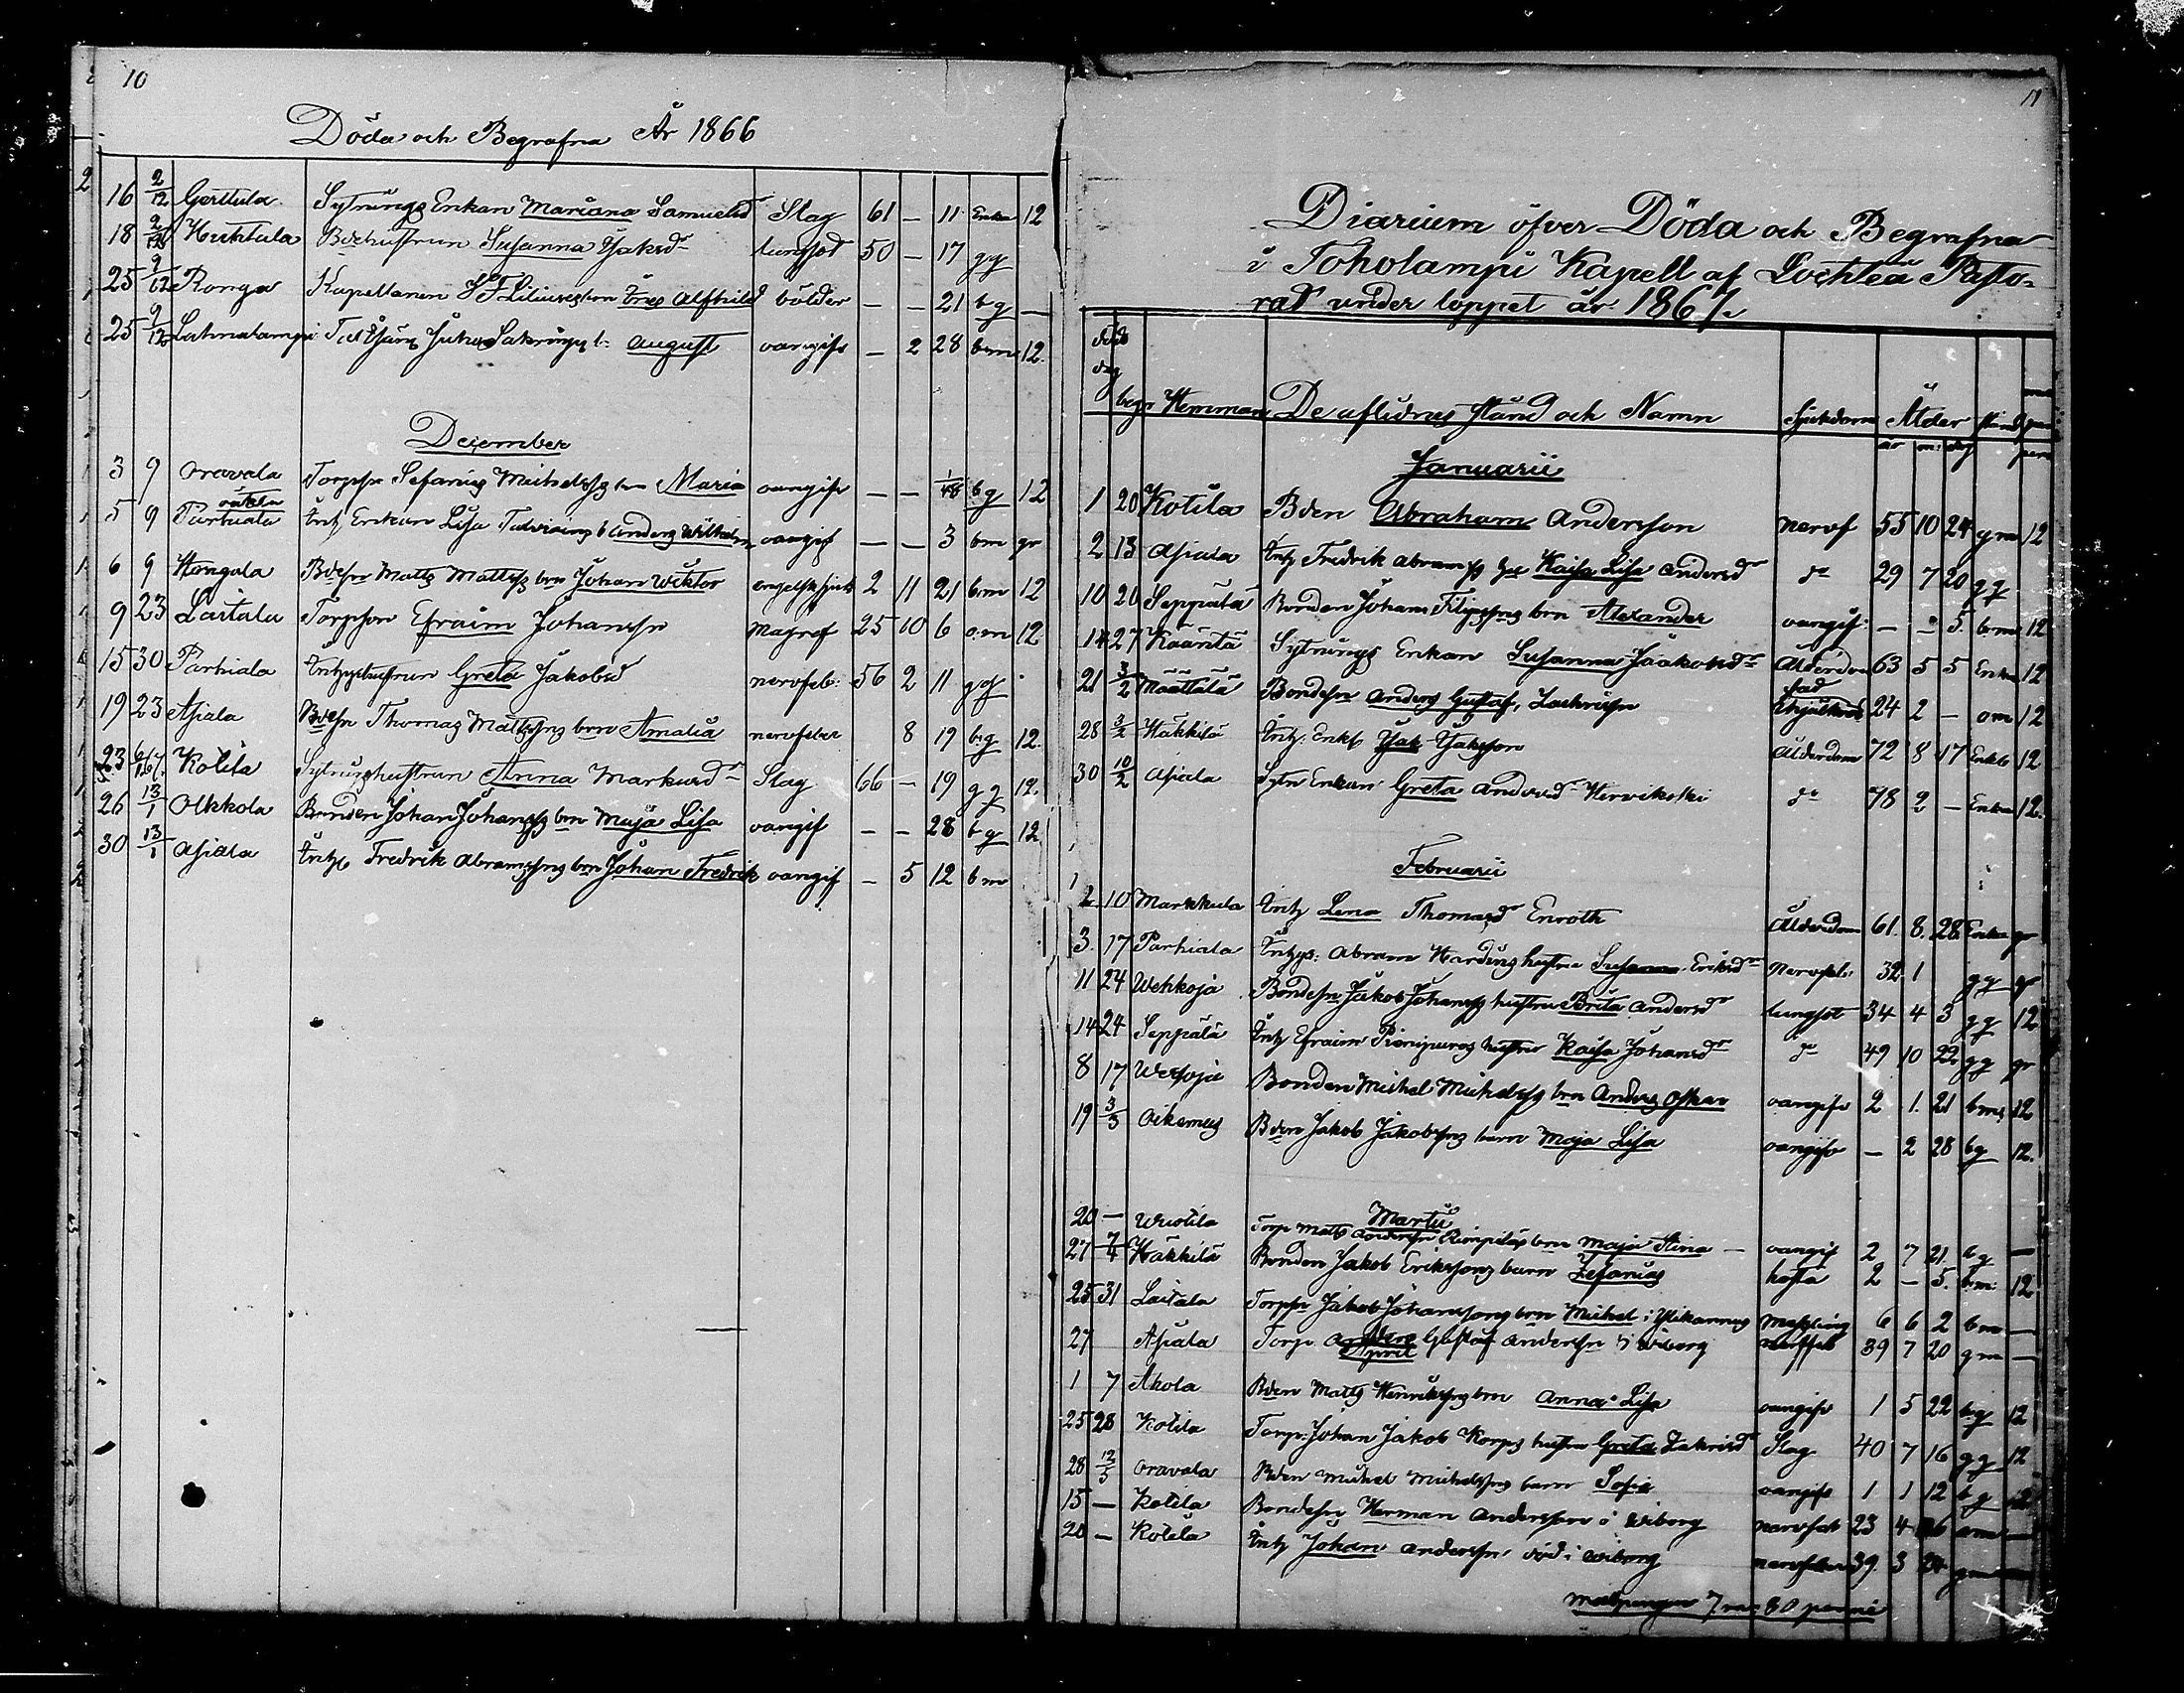 10
Döda och Begrafna År 1866
16 2/12 Gerttula Sytnings Enkan Mariana Samuelsdr Slag 61 — 11 Enka 12
18 2/12 Huhtala Bdehustrun Susanna Isaksdr lungsot 50 — 17 gg
25 9/12 Ronga Kapellanen Lilius brn Ines Alfhild bölder — — 21 bg —
25 9/12 Lahnalampi August oangifv — 2 28 bm 12.
December
3 9 Oravala Torpsn Sefanias Michelss brn Maria oangifv — — 1/48 bg 12
5 9 Parhiala Inh Enkan Lisa b Anders Wilhelm oangif — — 3 bm gr
6 9 Hongala Bdesn Matts Mattss brn Johan Wiktor engelsksjuk 2 11 21 bm 12
9 23 Laitala Torpson Efraim Johansn Magref 25 10 6 om 12
15 30 Parhiala Inhyshustrun Greta Jakobsd nervfeb: 56 2 11 gg
19 23 Asiala Bdesn Thomas Mattssons brn Amalia nervfeber 8 19 bg 12.
23 6/1 67. Kotila Sytningshustrun Anna Markusdr Slag 66 — 19 gg 12.
26 13/1 Olkkola Bonden Johan Johanss brn Maja Lisa oangif — — 28 bg 12
30 13/1 Asiala Inhys Fredrik Abramssons brn Johan Fredrik oangif — 5 12 bm
11
Diarium öfver Döda och Begrafna
i Toholampi Kapell af Lochteå Pasto-
rat under loppet år 1867.
död dag begr Hemman De aflidnas stånd och Namn Sjukdom Ålder stånd
år m: dag
Januarii
1 20 Kotila Bden Abraham Andersson nervf 55 10 24 gm 12
2 13 Asiala Inh Fredrik Abramss Kaisa Lisa Andersdr do 29 7 20 gg
10 20 Seppälä Bonden Johan Filipssons brn Alexander oangif — — 5. bm 12
14 27 Kääntä Sytnings Enkan Susanna Jaakobsdr Ålderdom 63 5 5 Enka 12
21 3/2 Määttälä Bondesn Anders Gustaf, Zachrissn 24 2 — om 12
28 3/2 Häkkilä Inh: Enkl Isak Isaksson Ålderdom 72 8 17 Enkl 12
30 10/2 Asiala Sytn Enkan Greta Andersdr Hervikoski do 78 2 — Enka 12.
Februarii
2. 10 Markkula Inh Lena Thomasdr Enroth Ålderdom 61. 8. 28. Enka gr
3. 17 Parhiala Inhys: Abram Hardings hustru Susanna Eriksdr Nervfeb: 32 1 gg gr
11 24 Wehkoja Bondesn Jakob Johanss hustru Brita Andersd lungsot 34 4 3 gg 12
14 24 Seppälä Inh Efraim hustru Kaisa Johansdr do 49 10 22 gg gr
8 17 Bonden Michel Michelss brn Anders Oskar oangifv 2 1. 21 bm 12
19 3/3 Oikemus Bden Jakob Jakobssons barn Maja Lisa oangifv — 2 28 bg 12.
Martii
20 — Torp Matts Andersn Rimpiläs brn Maja Stina — oangif 2 7 21 bg —
27 7/4 Häkkilä Bonden Jakob Erikssons barn Zefanias hosta 2 — 5. bm: 12
25 31 Laitala Torpsn Jakob Johanssons brn Michel i Ylikannus Messling 6 6 2 bm —
27 Asiala Torp Anders Gustaf Andersn i Wiborg 39 7 20 gm —
April
1 7 Akola Bden Matts Henrikssons brn Anna Lisa oangifv 1 5 22 bg 12
25 28 Kotila Torp: Johan Jakob Korps hustru Greta Zakrisdr Slag 40 7 16 gg 12
28 12/5 Oravala Bden Michel Michelssons barn Sofia oangifv 1 1 12 bg 12
15 — Kotila Bondesn Herman Andersson i Wiborg nervfeb 23 4 26 om —
20 — Kotila Inh Johan Andersn död i Wiborg nervfeber 39. 3 24 gm —
7 m 80 penni